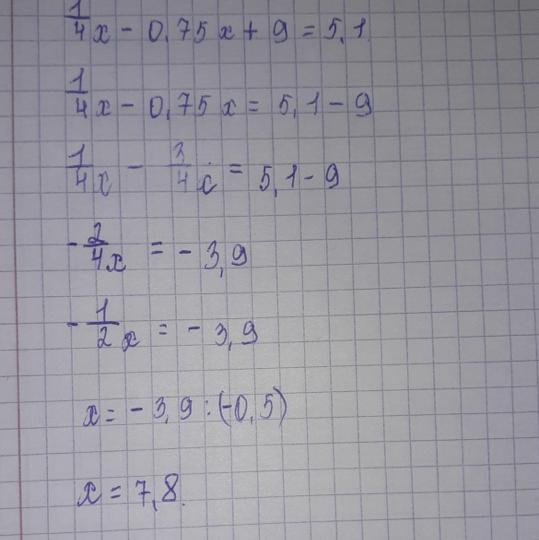 1/4x - 0,75x + 9 = 5,1
1/4x - 0,75x = 5,1 - 9
1/4x - 3/4x = 5,1 - 9
-2/4x = -3,9
-1/2x = -3,9
x = -3,9 : (-0,5)
x = 7,8.